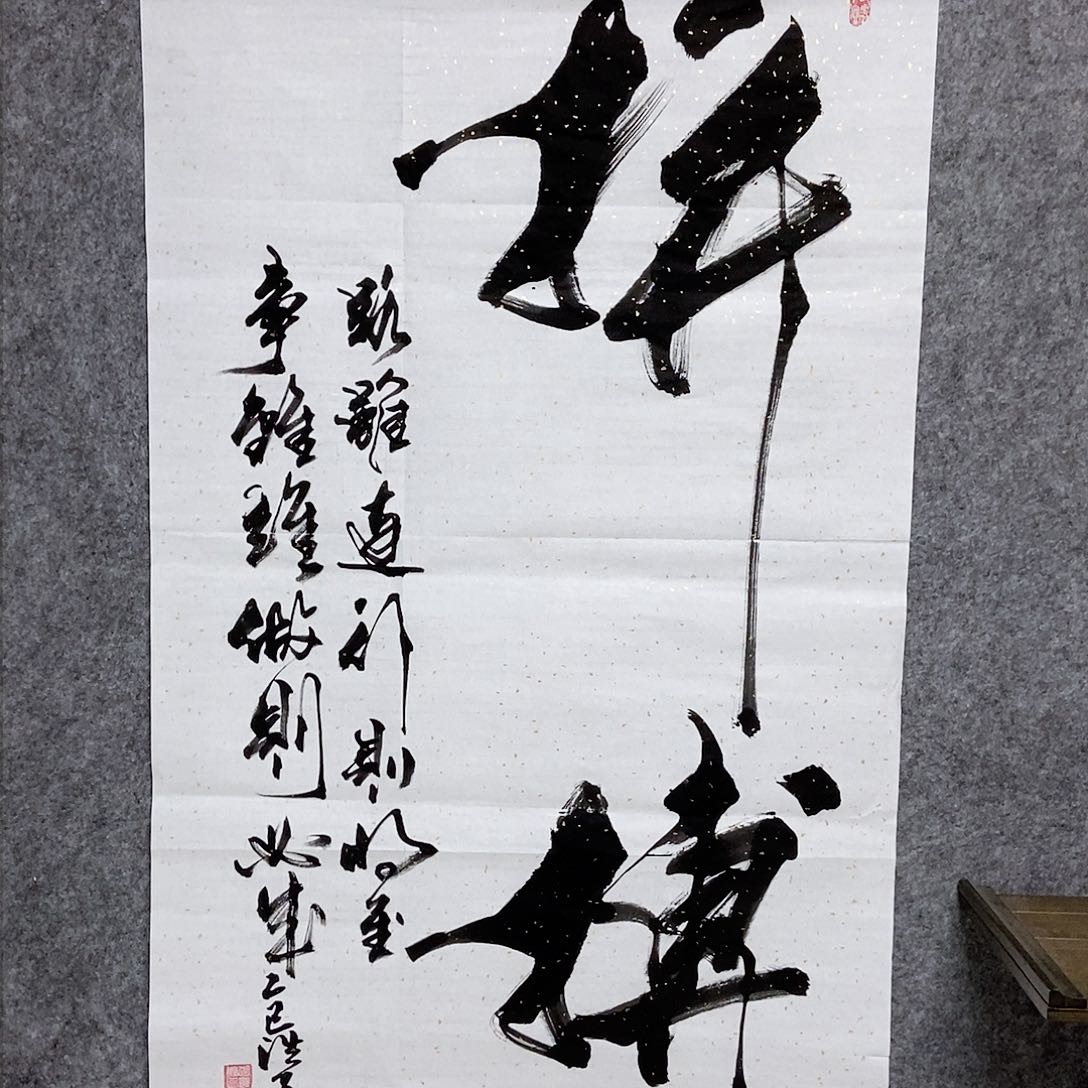 拼搏
路雖遠行則將至
事雖難做則必成
乙巳